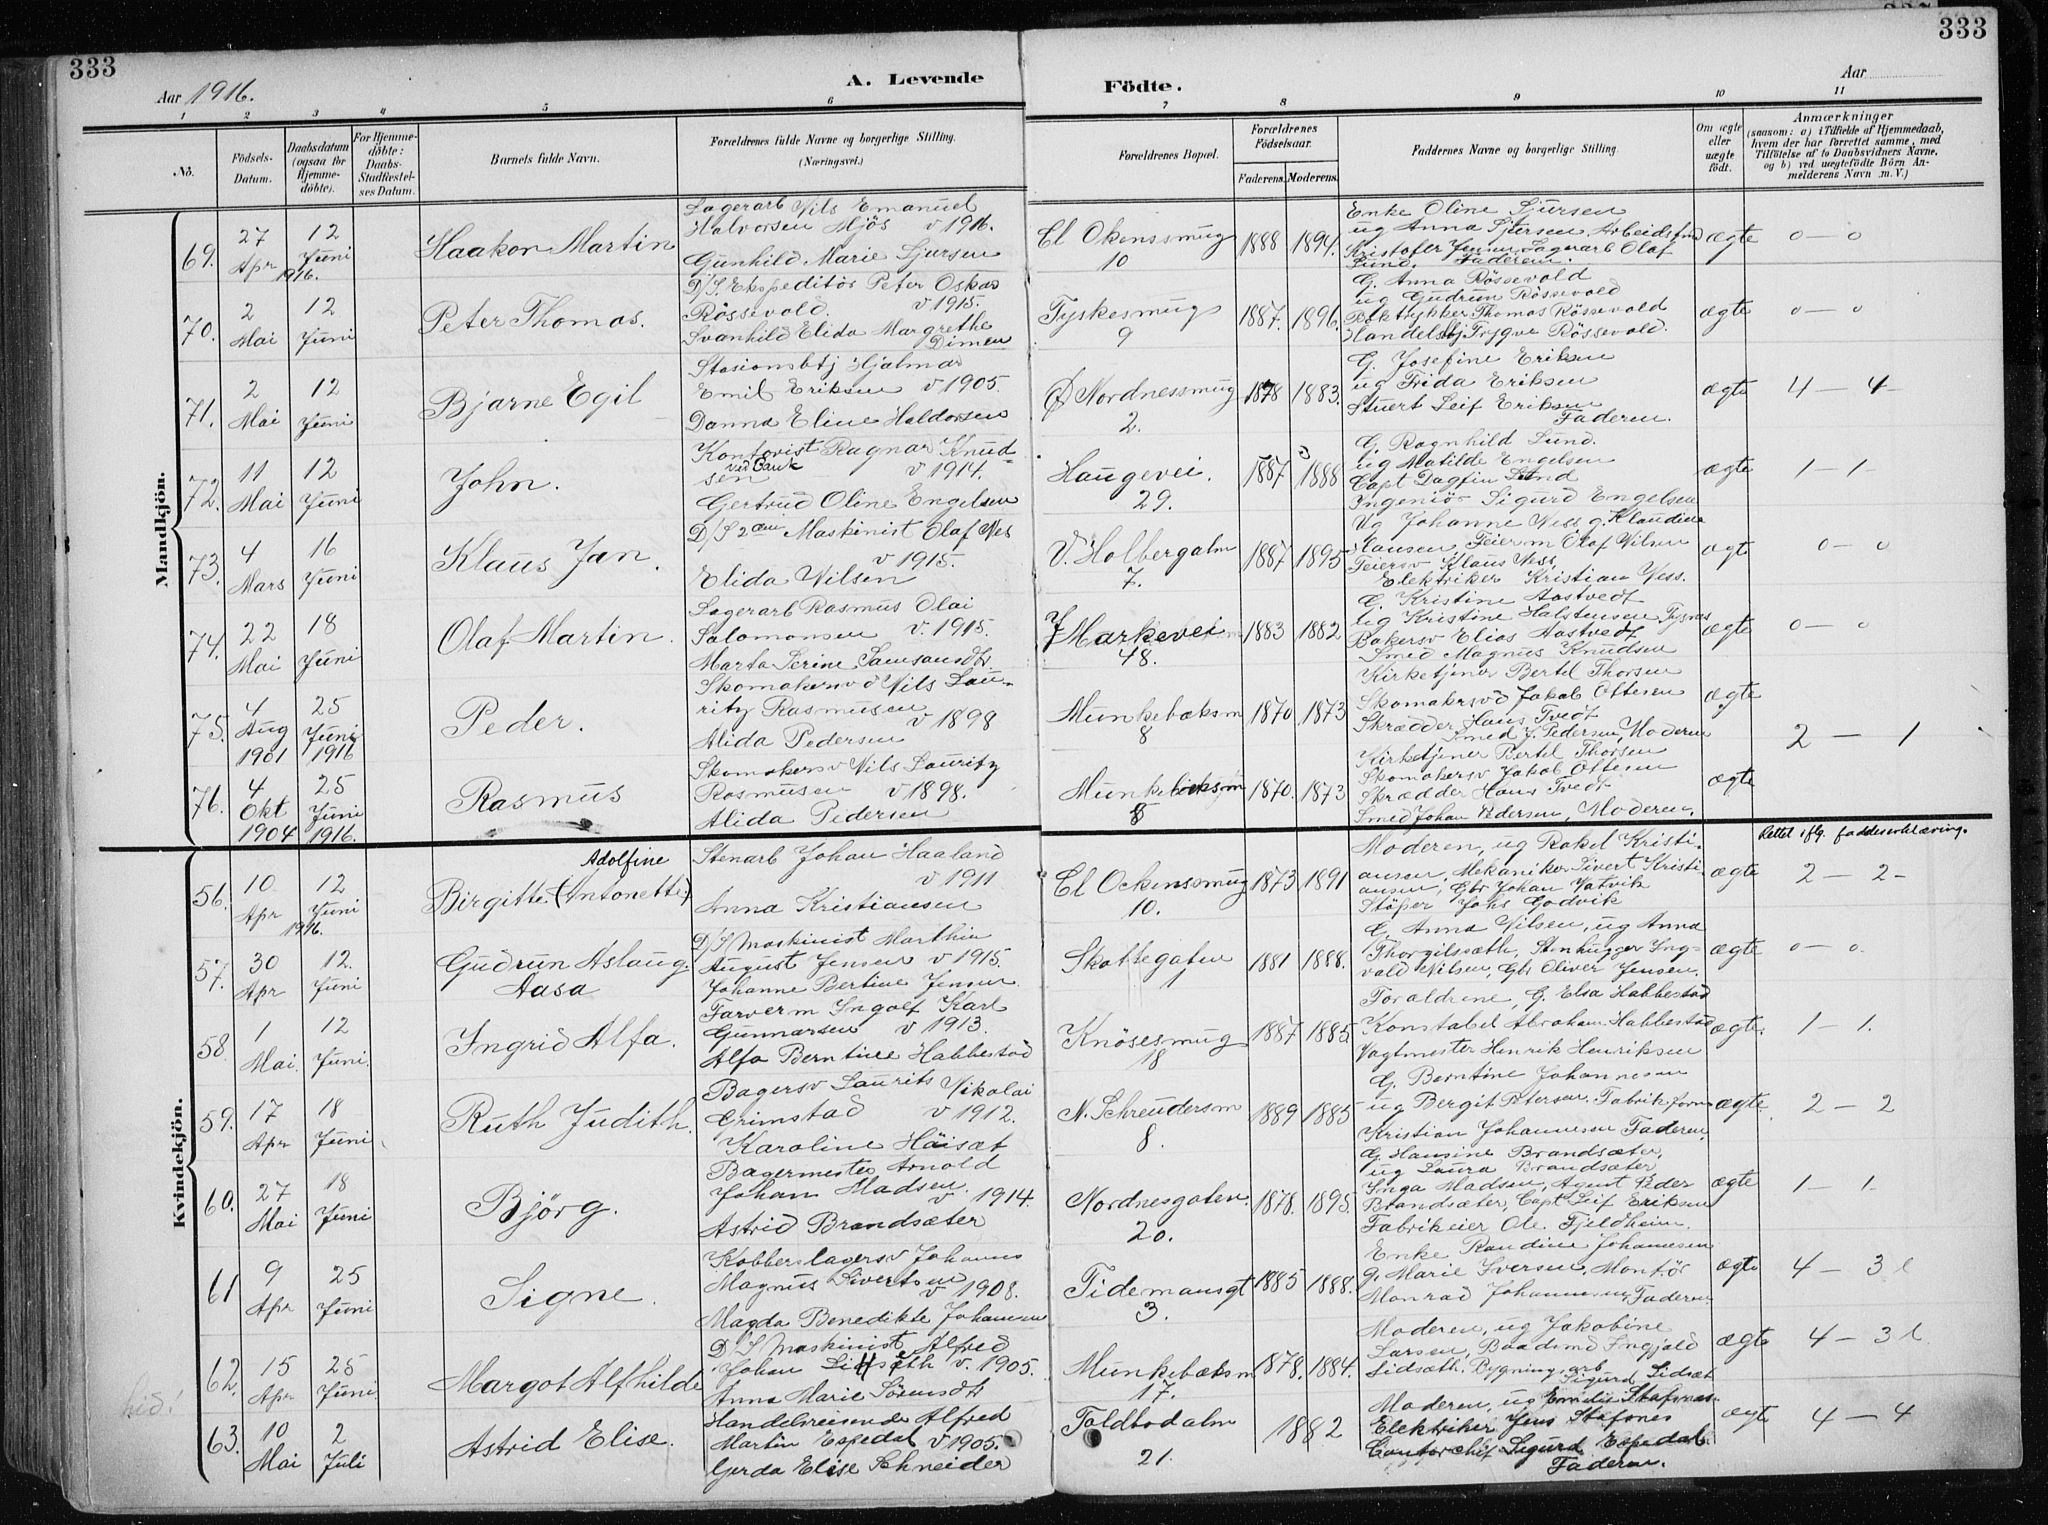 333
333
Aar 1916.
A. Levende
Födte.
Aar
1 2 3 4 5 6 7 8 9 10 11
No.
Födsels-Datum.
Daabsdatum (ogsaa for Hjemme-döbte).
For Hjemme-döbte: Daabs-Stadfæstel-ses Datum.
Barnets fulde Navn.
Forældrenes fulde Navne og borgerlige Stilling. (Næringsvei.)
Forældrenes Bopæl.
Forældrenes Födselsaar.
Faderens. Moderens.
Faddernes Navne og borgerlige Stilling.
Om ægte eller uægte födt.
Anmærkninger
(saasom: a) i Tilfælde af Hjemmedaab,
hvem der har forrettet samme, med
Tilföielse af to Daabsvidners Navne,
og b) ved uægtefödte Börn An-
melderens Navn m. V.)
Mandkjön.
69. 27 Apr 12 Juni 1916.
Haakon Martin
Lagerarb Nils Emanuel
Halvorsen Mjös v 1916.
Gunhild Marie Sjursen
Cl Okenssmug
10
1888 1894.
Enke Oline Sjursen
ug Anna Sjursen, Arbeidsfmd
Kristofer Jensen Lagerarb Olaf
Lund, Faderen.
ægte
0 — 0
70. 2 Mai 12 Juni
Peter Thomas.
D/S. Ekspeditör Peter Oskar
Rössevold. v 1915.
Svanhild Elida Margrethe
Dimen
Tyskesmug
9
1887. 1896.
G. Anna Rössevold
ug Gudrun Rössevold
Boktrykker Thomas Rössevold
Handelsbtj Trygve Rössevold.
ægte
0 — 0
71. 2 Mai 12 Juni
Bjarne Egil
Stasionsbtj Hjalmar
Emil Eriksen v 1905.
Danna Eline Haldorsen
Ø Nordnessmug
2.
1878 1883.
G. Josefine Eriksen
ug Frida Eriksen
Stuert Leif Eriksen
Faderen.
ægte
4 — 4
72. 11 Mai 12 Juni
John.
Kontorist Ragnar Knud-
ved Bank
sen v 1914.
Gertrud Oline Engelsen
Haugevei.
29.
1887 1888
G. Ragnhild Lund.
ug Matilde Engelsen
Capt Dagfin Lund
Ingeniör Sigurd Engelsen
ægte
1 — 1
73. 4 Mars 16 Juni
Klaus Jan.
D/S 2den Maskinist Olaf Nes
v 1915.
Elida Nilsen
V. Holbergalm
7.
1887 1895
Ug Johanne Ness g. Klaudine
Hansen, Feierm Olaf Nilsen
Feiersv Klaus Ness,
Elektriker Kristian Ness.
ægte
0 — 0
74. 22 Mai 18 Juni
Olaf Martin.
Lagerarb Rasmus Olai
Salomonsen v. 1915.
Marta Serine Samsonsdtr
Y Markeveien
48.
1883 1882
G. Kristine Aastvedt
ug Kristine Halstensen Tysnes
Bakersv Elias Aastvedt
Smed Magnus Knudsen
ægte
0 — 0
75. 4 Aug 1901 25 Juni 1916
Peder.
Skomakersvd Nils Lau-
ritz Rasmusen
v 1898
Alida Pedersen
Munkebæksm
8
1870. 1873
Kirketjener Bertel Thorsen
Skomakersvd Jakob Oftesen
Skrædder Hans Tvedt
Smed J. Pedersen, Moderen
ægte
2 — 1
76. 4 Okt 1904 25 Juni 1916.
Rasmus
Skomakersv Nils Lauritz
Rasmusen v 1898.
Alida Pedersen
Munkebæksm
8
1870. 1873
Kirketjener Bertel Thorsen
Skomakersv Jakob Oftesen
Skrædder Hans Tvedt
Smed Johan Pedersen, Moderen.
ægte
Kvindekjön.
56. 10 Apr 12 Juni 1916.
Adolfine
Birgitte (Antonette)
Stenarb Johan Haaland
v 1911
Anna Kristiansen
Cl Ockenssmug
10.
1873 1891
Moderen, ug Rakel Kristi-
ansen, Mekaniker Sivert Kristi-
ansen, Gbr Johan Vatvik
Stöper Johs Godvik
ægte
Rettet iflg. faddererklæring.
2 — 2
57. 30 Apr 12. Juni
Gudrun Aslaug
Aasa
D/S Maskinist Marthin
August Jensen v 1915.
Johanne Bertine Jensen
Skottegaten
1
1881 1888.
G. Anna Nilsen, ug Anna
Thorgilssæth, Stenhugger Ing-
vald Nilsen, Gbr Oliver Jensen.
ægte
0 — 0.
58. 1 Mai. 12 Juni.
Ingrid Alfa.
Farverm Ingolf Karl
Gunnarsen v 1913.
Alfa Berntine Habbestad
Knösesmug
18
1887 1885.
Foraldrene, G. Elsa Habbestad
Konstabel Abraham Habbestad
Vagtmester Henrik Henriksen
ægte.
1 — 1.
59. 17 Apr 18 Juni
Ruth Judith.
Bagersv Laurits Nikolai
Grimstad v 1912.
Karoline Häisæt
N. Schreudersm
8.
1889 1885
G. Berntine Johannesen
ug Bergit Petersen. Fabrikform
Kristian Johannesen Faderen,
ægte.
2 — 2
60. 27 Mai 18 Juni
Björg.
Bagermester Arnold
Johan Madsen.
v. 1914.
Astrid Brandsæter
Nordnesgaten
20.
1878. 1895.
G. Hansine Brandsæter,
ug Laura Brandsæter
Inga Madsen, Agent Peder
Brandsæter, Capt Leif Eriksen
Fabrikeier Ole. Fjeldheim.
ægte
1 — 1.
61 9 Apr 25 Juni
Signe.
Kobberslagersv Johannes
Magnus Sivertsen
v 1908.
Magda Benedikte Johansen
Tidemansgt
3.
1885 1888.
Enke Randine Johannesen
g. Marie Iversen, Montör
Monrad Johannesen, Faderen.
ægte
4 — 3 l
62. 15 Apr 25 Juni
Margot Alfhilde
D/S Maskinist Alfred
Johan Lidsæth v. 1905.
Anna Marie Sörensdtr
Munkebæksm
17.
1878. 1884.
Moderen, ug Jakobine
Larsen, Baadsmd Ingjald
Lidsæth. Bygningsarb
Sigurd Lidsæt
ægte
4 — 3 l
63. 10 Mai 2 Juli
Astrid Elise.
Handelsreisende Alfred
Martin Espedal v 1905.
Gerda Elise Schneider
Toldbodalm
21.
1882
Moderen, ug Emilie Stafsnes
Elektriker Jens Stafsnes
Contorchef Sigurd Espedal.
Faderen.
ægt
4 — 4